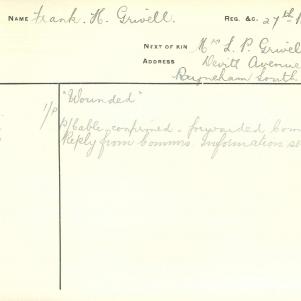 NAME Frank. H. Grivell. REG. &C. 27th
NEXT OF KIN Mrs L. P. Grivell
ADDRESS Devitt Avenue
Payneham South
"Wounded"
1/P P/Cable confirmed. forwarded Com
Reply from Commrs. Information se